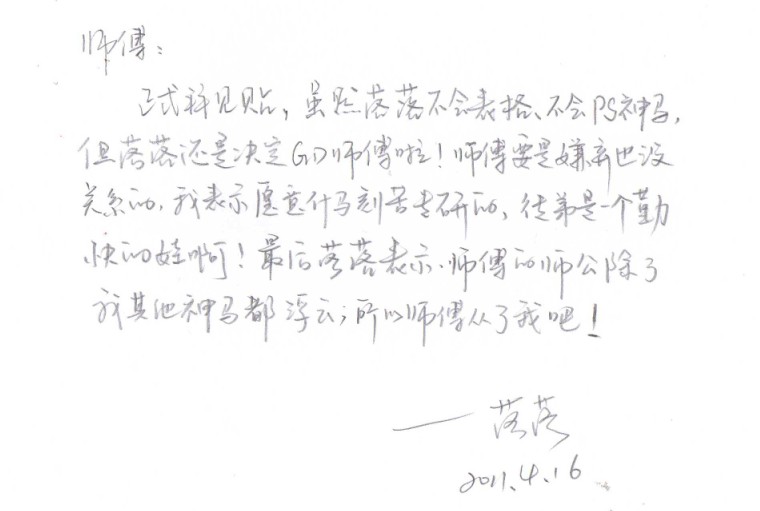 师傅:
正式拜见贴,虽然落落不会表格、不会PS神马,
但落落还是决定GD师傅啦!师傅要是嫌弃也没
关系的,我表示愿意什马刻苦专研的,徒弟是一个勤
快的娃啊!最后落落表示,师傅的师公除了
我其他神马都浮云;所以师傅从了我吧!
——落落
2011.4.16